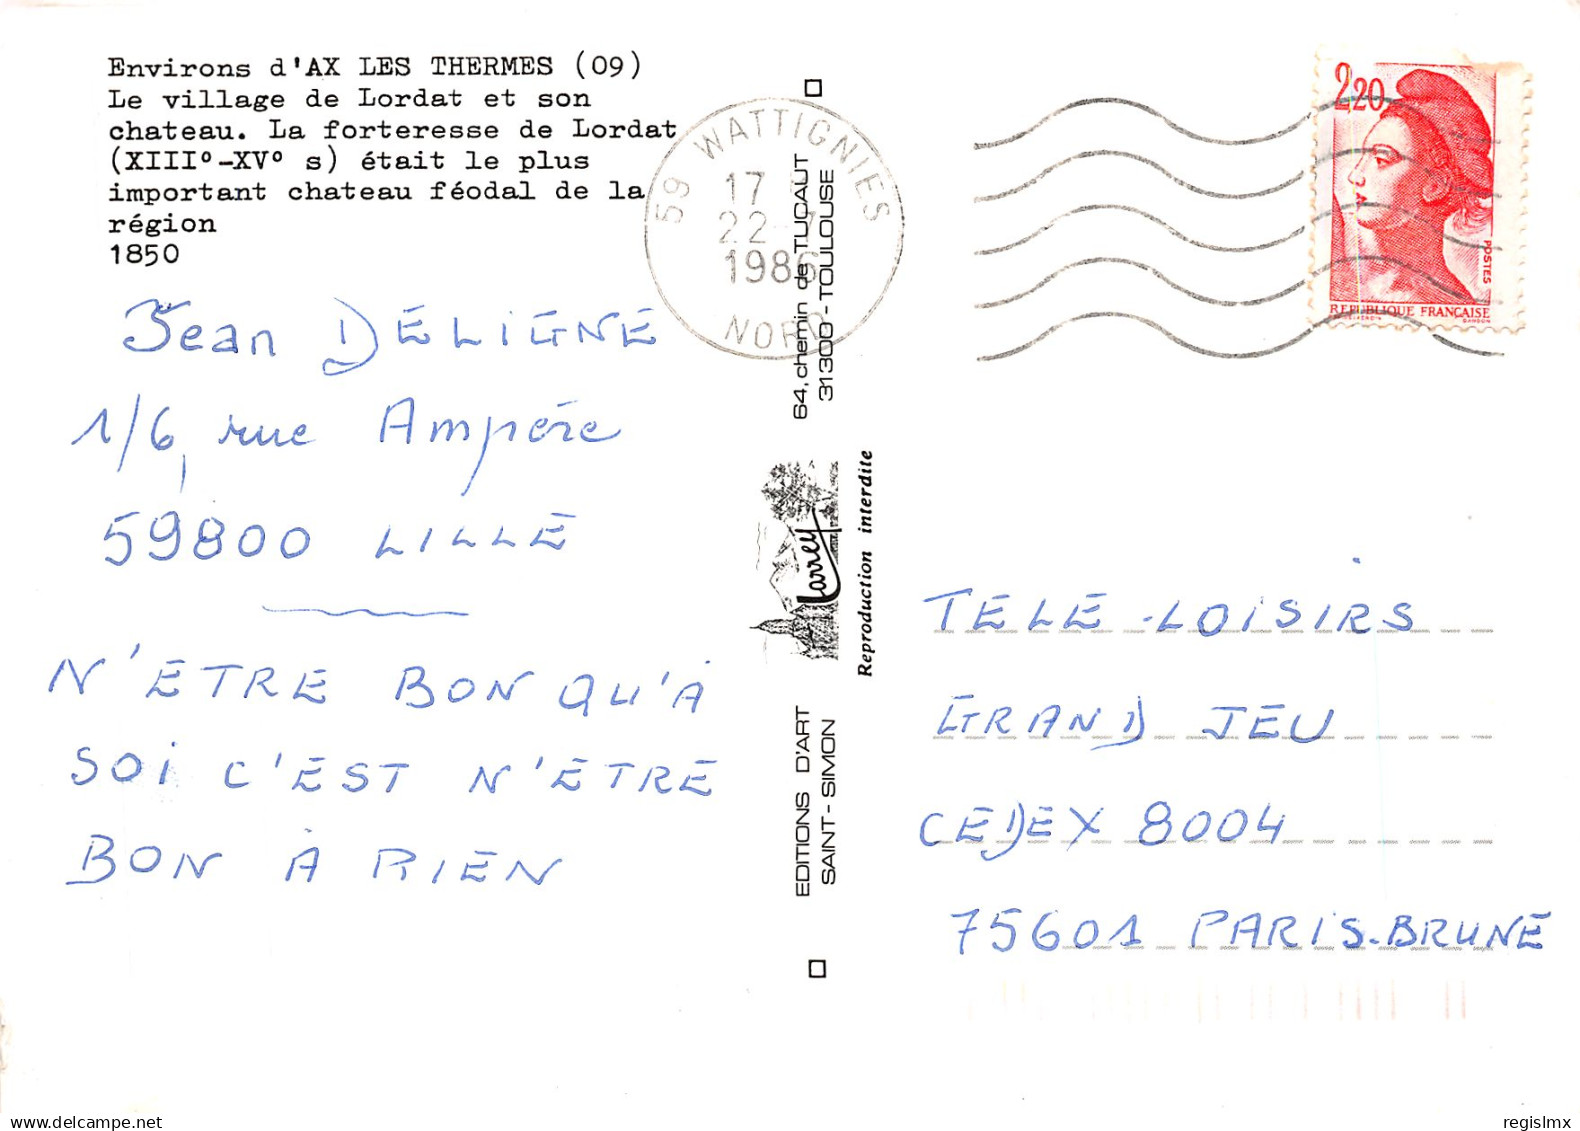 Environs d'AX LES THERMES (09)
Le village de Lordat et son
chateau. La forteresse de Lordat
(XIII°-XV° s) était le plus
important chateau féodal de la
région
1850
59 WATTIGNIES
17
22-7
1986
NORD
2,20
POSTES
REPUBLIQUE FRANCAISE
Jean DELIGNE
1/6, rue Ampère
59800 LILLE
N'ETRE BON QU'À
SOI C'EST N'ETRE
BON À RIEN
64, chemin de TUCAUT
31300 - TOULOUSE
Larrey
Reproduction interdite
EDITIONS D'ART
SAINT-SIMON
TELE-LOISIRS
GRAND JEU
CEDEX 8004
75601 PARIS-BRUNE
delcampe.net
regislmx